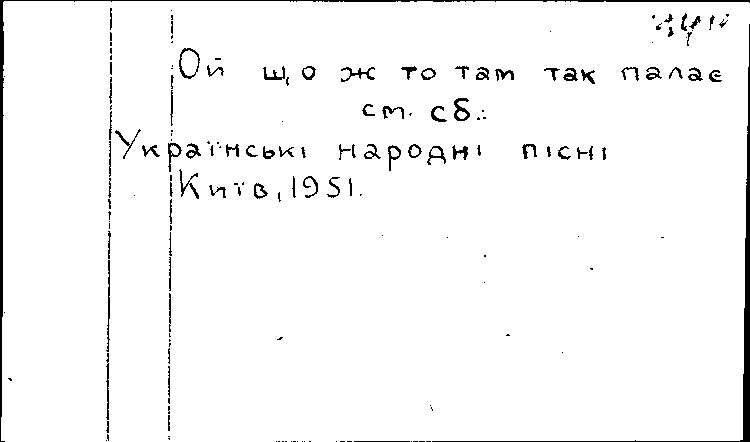 Ой що ж то там так палає
см. сб.:
Українські народні пісні
Київ, 1951.